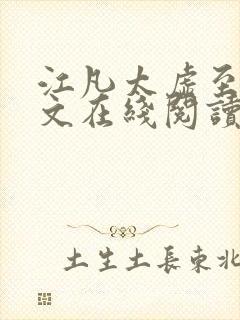 江凡太虚至
文在綫閱讀
土生土長東北